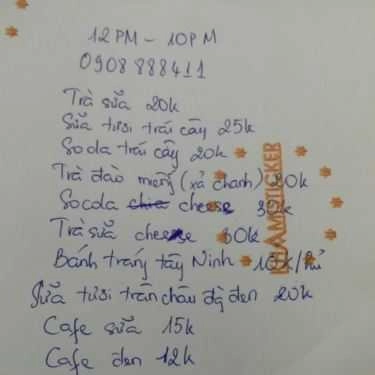 12PM - 10PM
0908 888411
Trà sữa 20k
Sữa tươi trái cây 25k
Soda trái cây 20k
Trà đào miếng (xả chanh) 20k
Socola cheese 30k
Trà sữa cheese 30k
Bánh tráng tây Ninh 10k/hủ
Sữa tươi trân châu đg đen 20k
Cafe sữa 15k
Cafe đen 12k